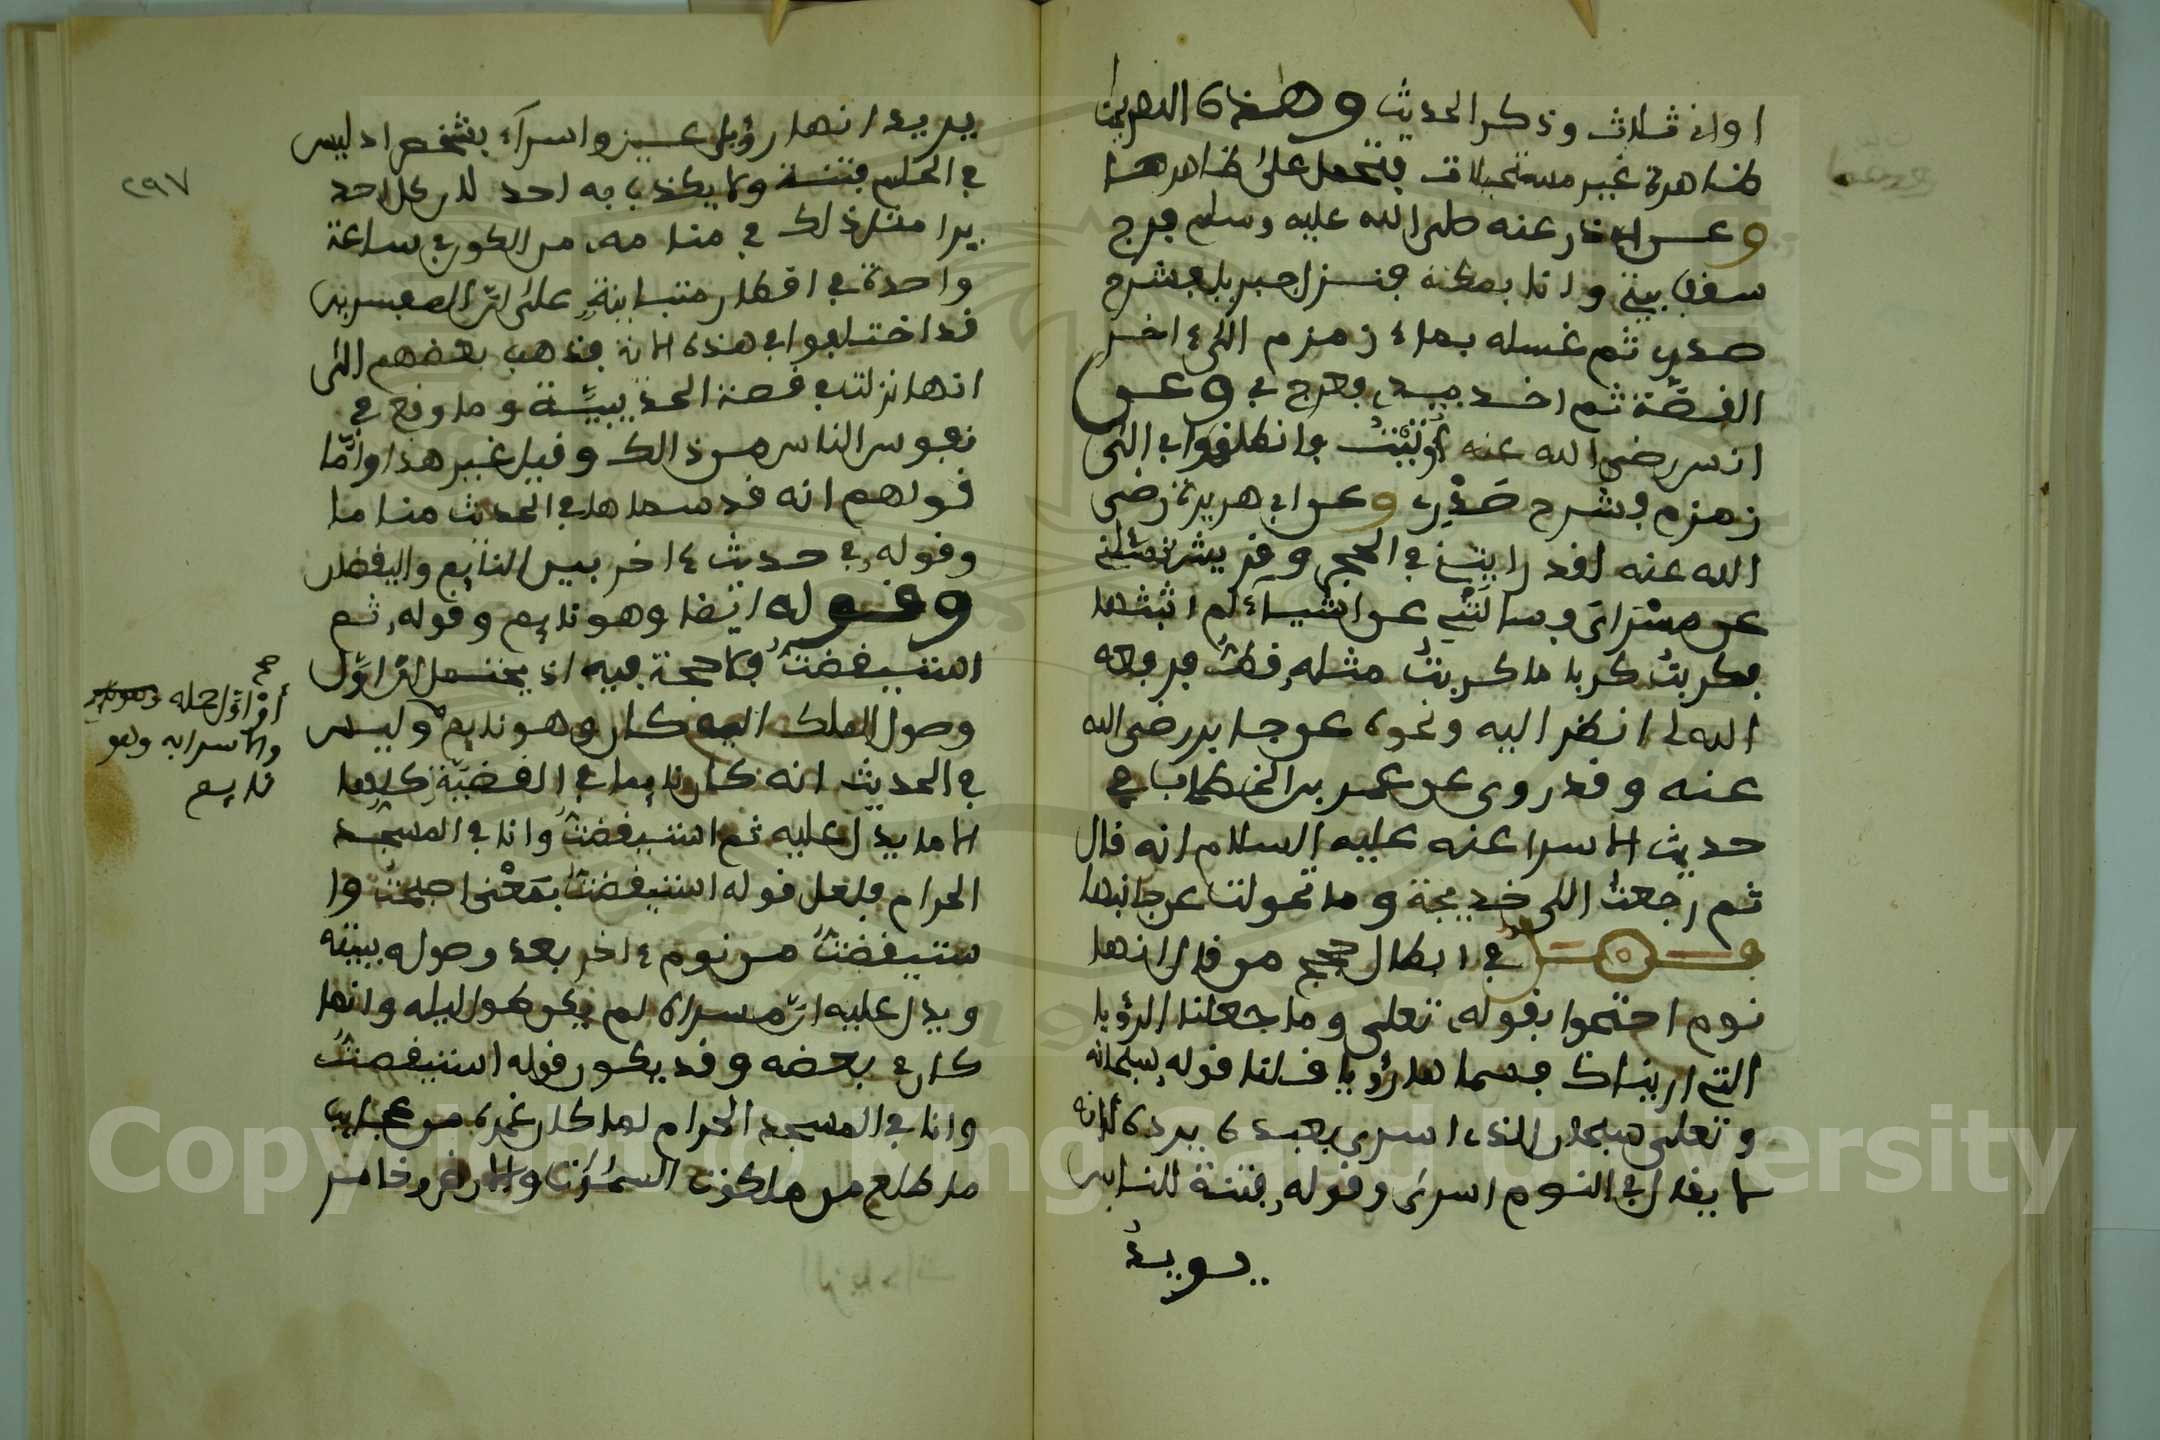 اواني ثلاث وذكر الحديث وهذه التصريحات
ظاهرة غير مستحيلات فتحمل على ظاهرها
وعن ابي ذر عنه صلى الله عليه وسلم فرج
سقف بيتي وانا بمكة فنزل جبريل فشرح
صدري ثم غسله بماء زمزم الى ءاخر
القصة ثم اخذ بيدي فعرج بي وعن
انس رضي الله عنه أُوتِيتُ فانطلقوا بي الى
زمزم فشرح صَدْرِي وعن ابي هريرة رضي
الله عنه لقد رايتني في الحجر وقريش تسئلني
عن مسْرَايَ فسالَتْنِي عن اشياء لم اثبتها
فكربتُ كربا ما كربتُ مثله قطُّ فرفعه
الله لي انظر اليه ونحوه عن جابر رضي الله
عنه وقد روى عن عمر بن الخطاب في
حديث الاسرا عنه عليه السلام انه قال
ثم رجعتُ الى خديجة وما تحولت عن جانبها
فصل في ابطال حجج من قال انها
نوم احتجوا بقوله تعلى وما جعلنا الرؤيا
التي اريناك فسماها رؤيا قلنا قوله سبحانه
وتعلى سبحان الذي اسرى بعبده يرده لانه
لا يقال في النوم اسرى وقوله فتنة للناس
يويدُ
يريد انها رؤيا عين واسراء بشخص اذ ليس
في الحلم فتنة ولا يكذب به احد لان كل احد
يرا مثل ذلك في منامه من الكون في ساعة
واحدة في اقطار متباينةٍ على انّ المفسرين
قد اختلفوا في هذه الاية فذهب بعضهم الى
انها نزلت في قصة الحديبيَّة وما وقع في
نفوس الناس من ذالك وقيل غير هذا وأمَّا
قولهم انه قد سماها في الحديث مناما
وقوله في حديث ءاخر بين النايم واليقظان
وقوله ايضا وهو نايم وقوله ثم
استيقظتُ فلا حجة فيه اذ يحتمل انّ اوّل
وصول الملك اليه كان وهو نايم وليس
في الحديث انه كان نايما في القضيّة كلها
الا ما يدل عليه ثم استيقظتُ وانا في المسجد
الحرام فلعل قوله استيقظتُ بمَعْنى اصبحتُ وا
ستيقظتُ من نوم ءاخر بعد وصوله بيته
ويدل عليه انّ مسراه لم يكن طول ليله وانما
كان في بعضه وقد يكون قوله استيقظتُ
وانا في المسجد الحرام لما كان غمره من عجايب
ما طالع من ملكوت السمٰوٰت والارض وخامر
٢٩٧
صح
أو أوّل حمله
والاسرا به وهو
نايم
Copyright © King Saud University